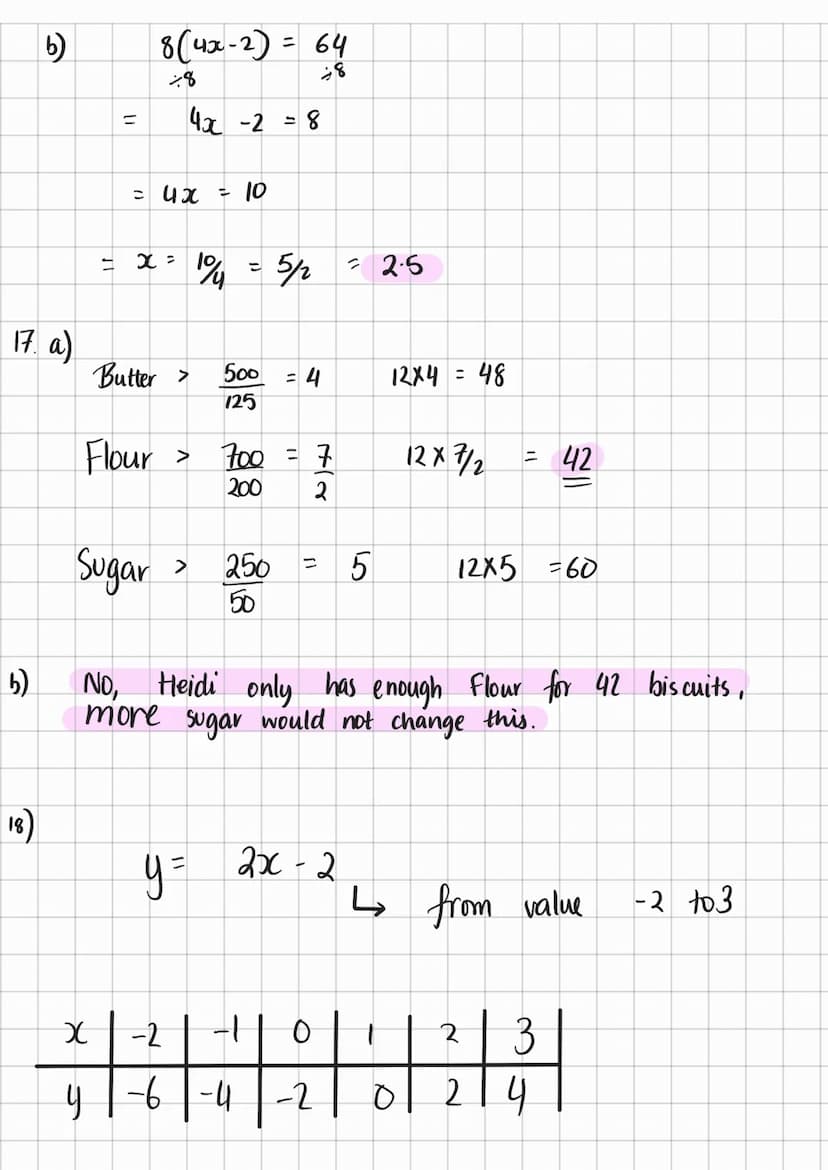 b) 8(4x-2) = 64
÷8 ÷8
= 4x -2 = 8
= 4x = 10
= x = 10/4 = 5/2 = 2.5
17. a)
Butter > 500/125 = 4 12x4 = 48
Flour > 700/200 = 7/2 12 x 7/2 = 42
Sugar > 250/50 = 5 12x5 = 60
b) No, Heidi only has enough Flour for 42 biscuits,
more sugar would not change this.
18)
y = 2x - 2
↳ from value -2 to 3
x | -2 | -1 | 0 | 1 | 2 | 3
y | -6 | -4 | -2 | 0 | 2 | 4